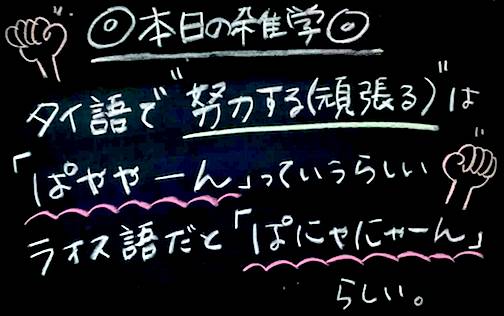 ◎本日の雑学◎
タイ語で"努力する(頑張る)"は
「ぱややーん」っていうらしい
ラオス語だと「ぱにゃにゃーん」
らしい。